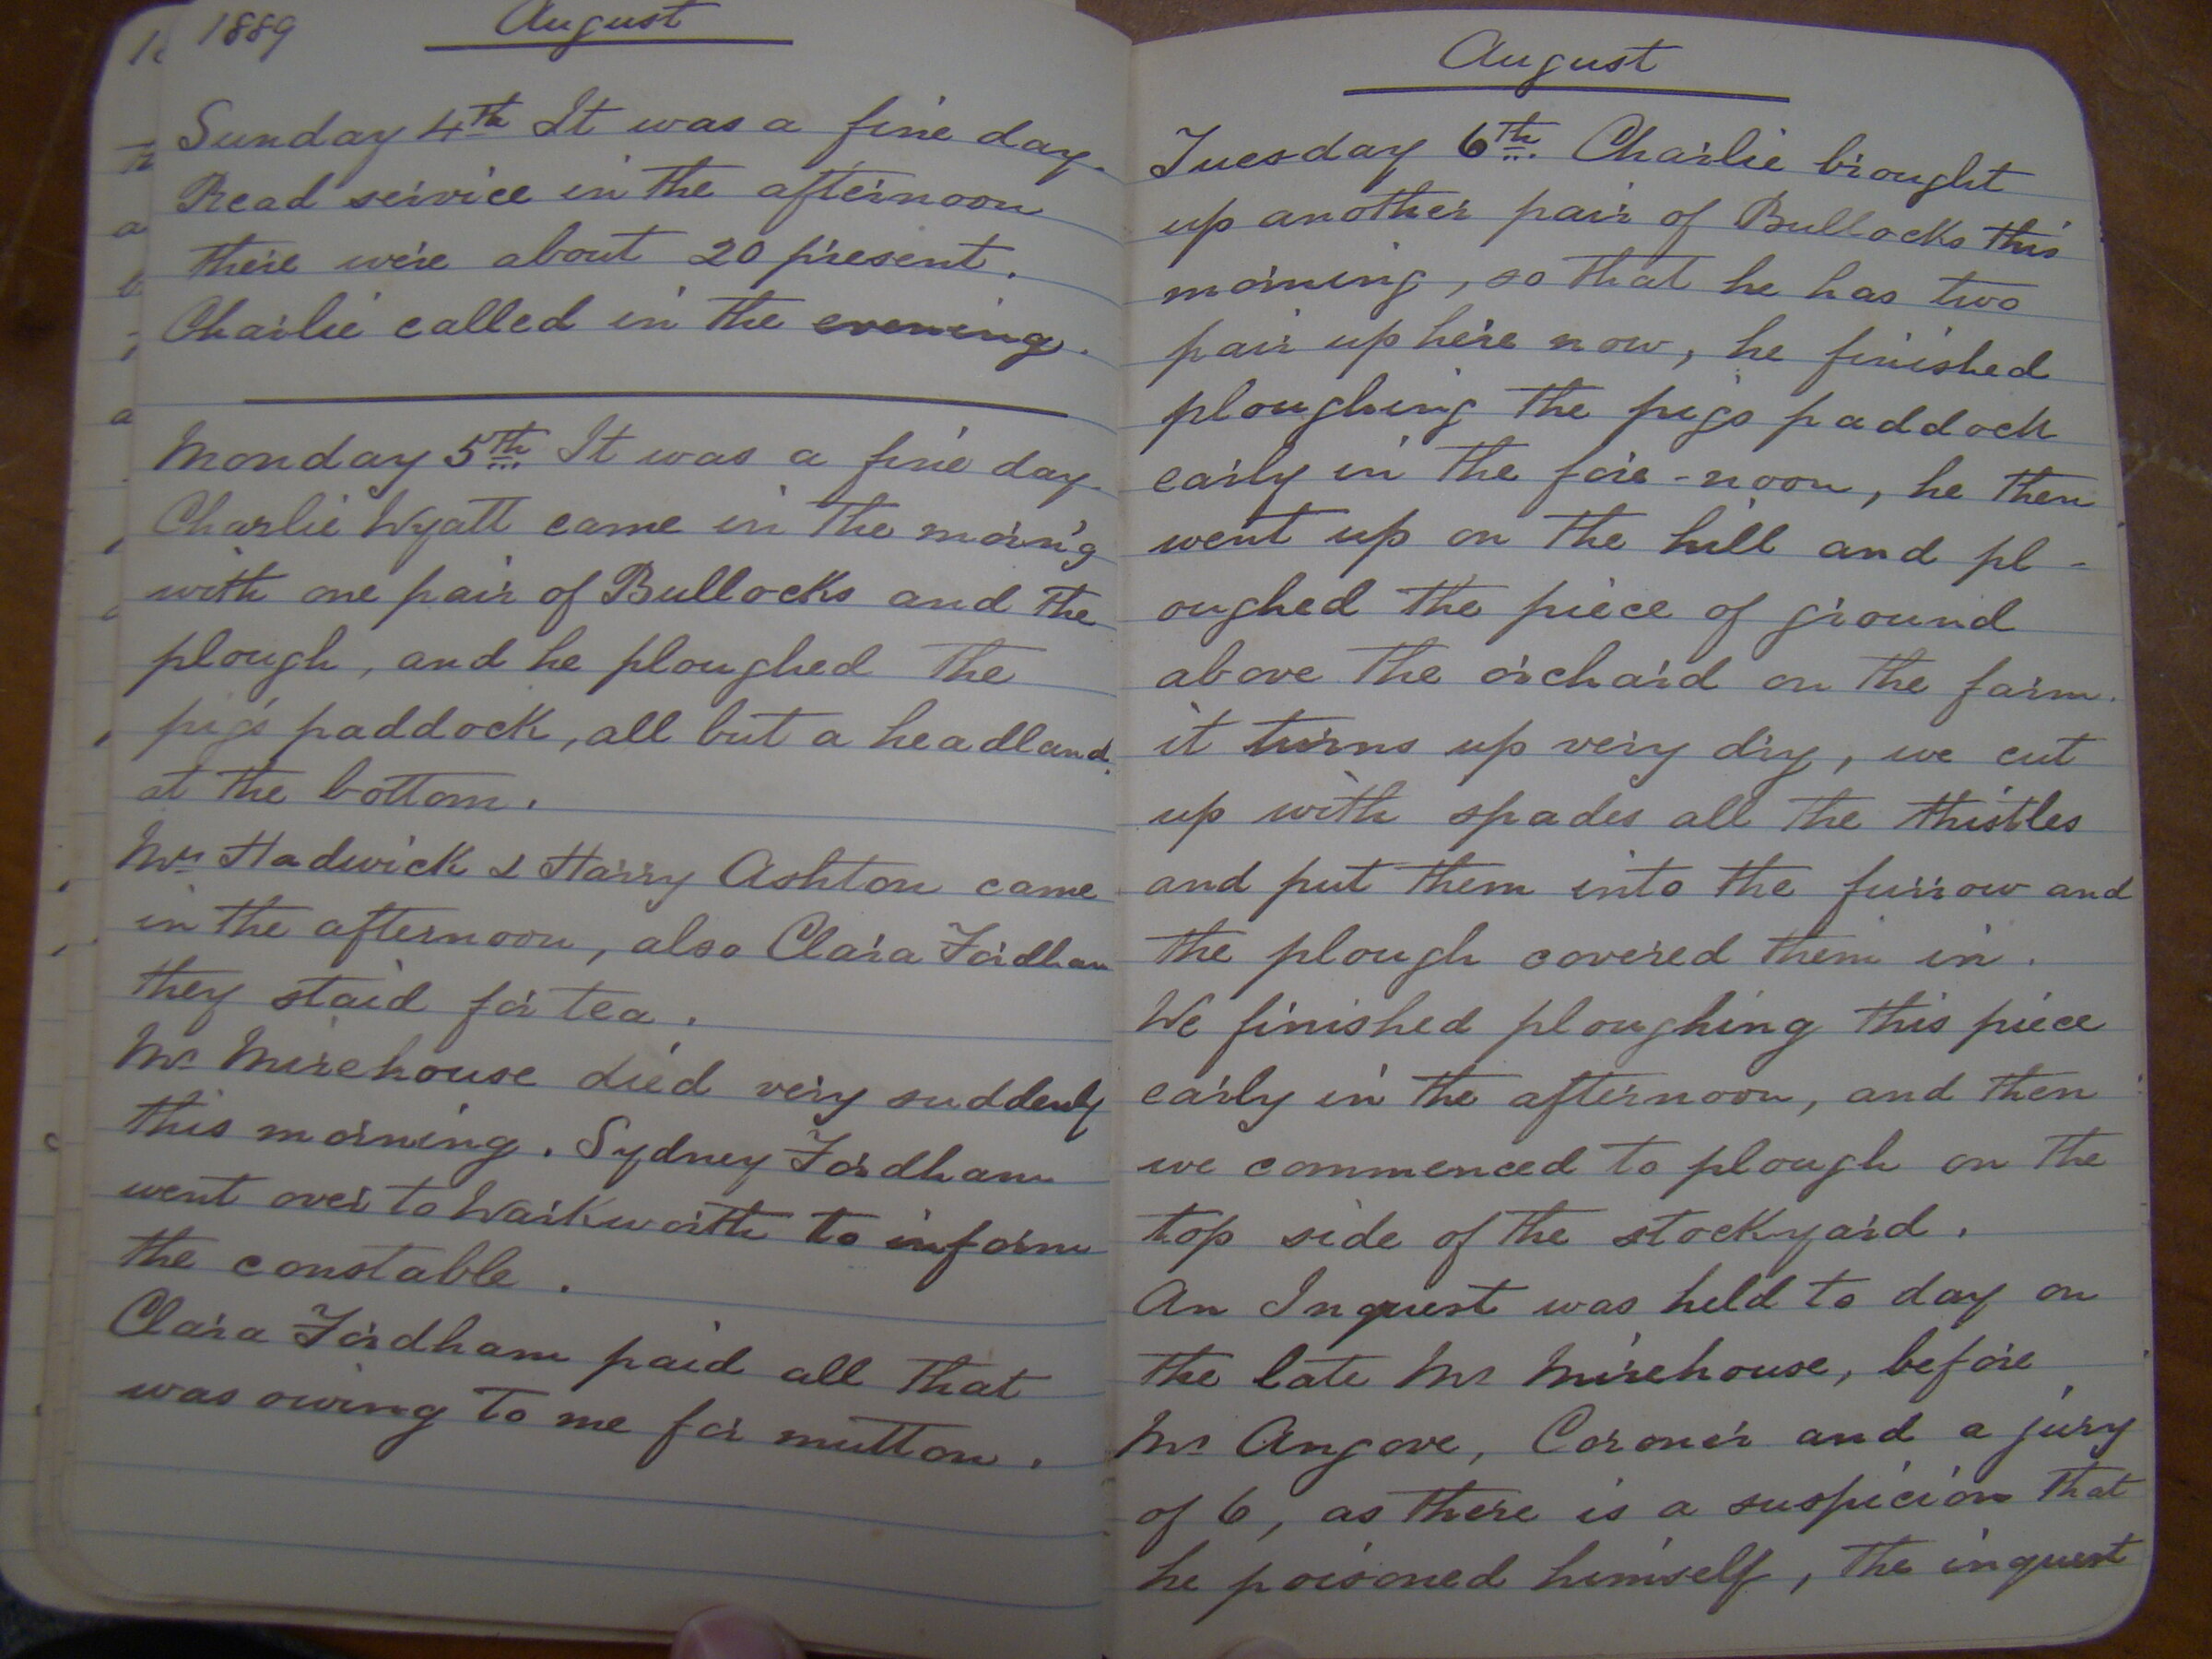 1889 August
Sunday 4th It was a fine day.
Read service in the afternoon
there were about 20 present.
Charlie called in the evening.
Monday 5th It was a fine day.
Charlie Wyatt came in the morn'g
with one pair of Bullocks and the
plough, and he ploughed the
pigs paddock, all but a headland.
at the bottom.
Mrs Hadwick & Harry Ashton came
in the afternoon, also Clara Fordham
they staid for tea.
Mr Mirehouse died very suddenly
this morning. Sydney Fordham
went over to Warkworth to inform
the constable.
Clara Fordham paid all that
was owing to me for mutton.
August
Tuesday 6th. Charlie brought
up another pair of Bullocks this
morning, so that he has two
pair up here now, he finished
ploughing the pigs paddock
early in the fore-noon, he then
went up on the hill and pl-
oughed the piece of ground
above the orchard on the farm.
it turns up very dry, we cut
up with spades all the thistles
and put them into the furrow and
the plough covered them in.
We finished ploughing this piece
early in the afternoon, and then
we commenced to plough on the
top side of the stockyard.
An Inquest was held to day on
the late Mr Mirehouse, before
Mr Angove, Coroner and a jury
of 6, as there is a suspicion that
he poisoned himself, the inquest